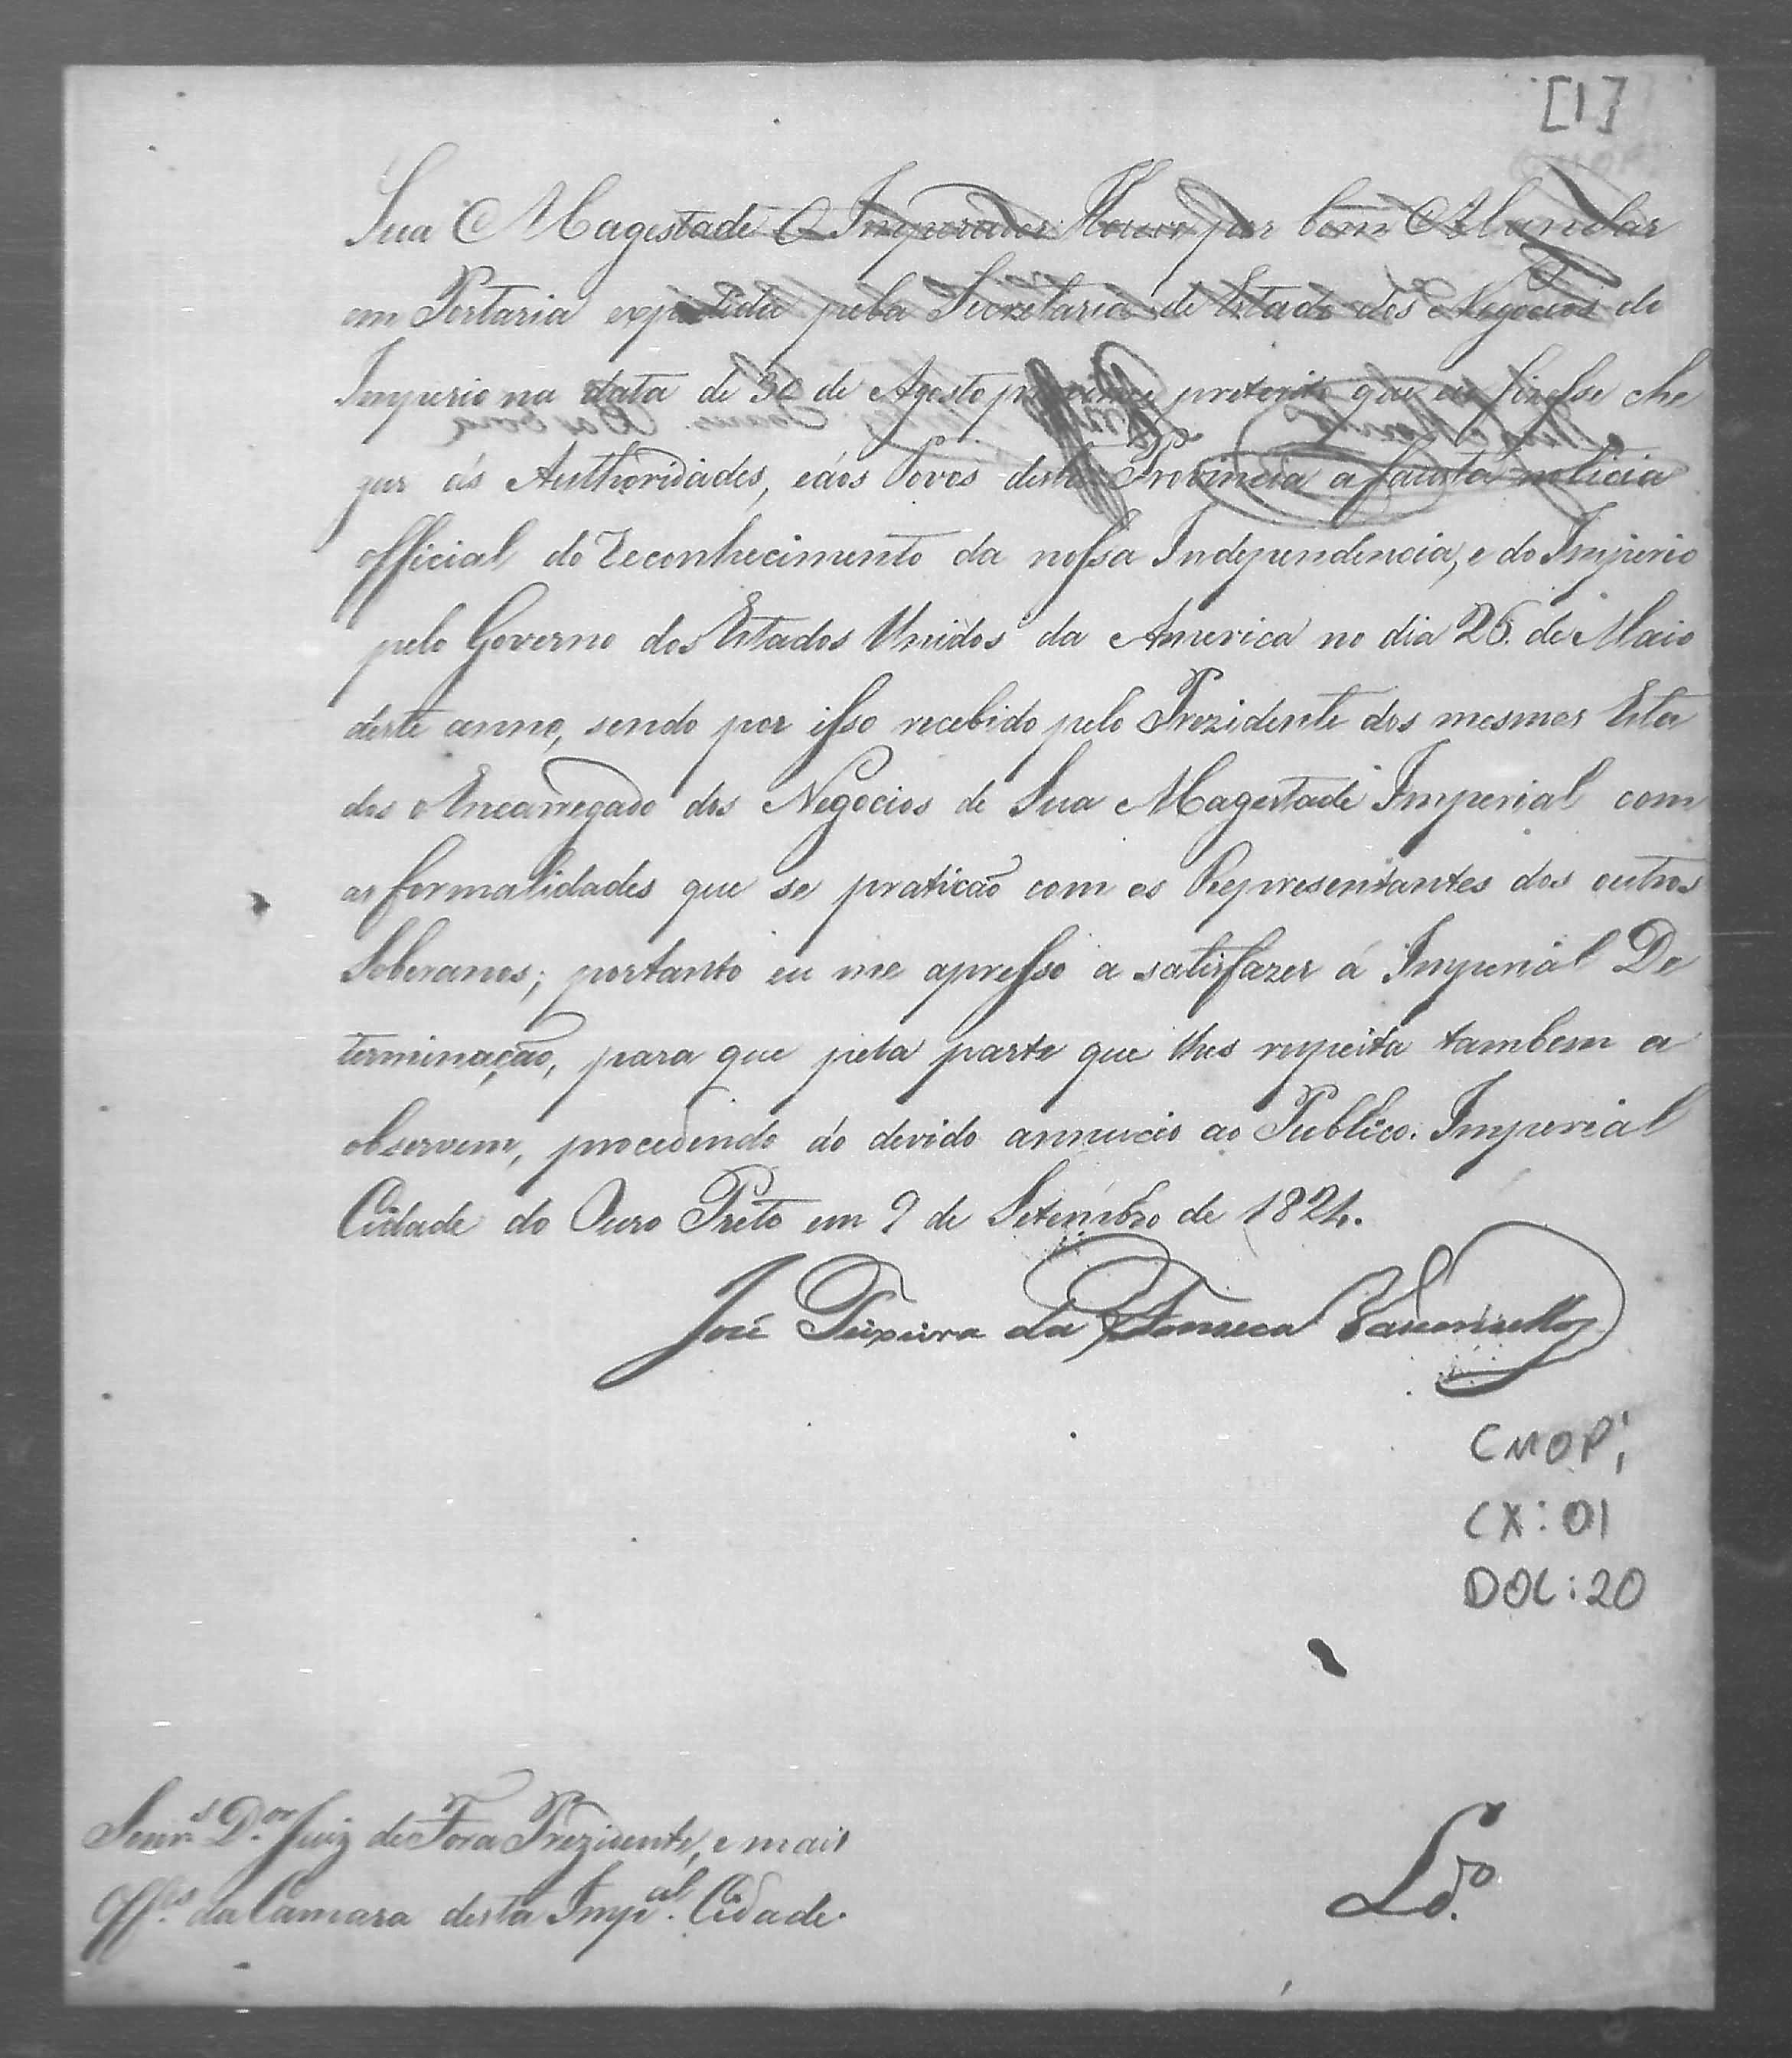 [1]
Sua Magestade O Imperador Houve por bem Mandar
em Portaria expedida pela Secretaria de Estado dos Negocios do
Imperio na data de 30 de Agosto proximo preterito que eu fizesse che
gar ás Authoridades, e áos Povos desta Provincia a fausta noticia
official do Reconhecimento da nossa Independencia, e do Imperio
pelo Governo dos Estados Unidos da America no dia 26. de Maio
deste anno, sendo por isso recebido pelo Prezidente dos mesmos Esta
dos o Encarregado dos Negocios de Sua Magestade Imperial com
as formalidades que se praticão com os Representantes dos outros
Soberanos; portanto eu me apresso a satisfazer á Imperial De
terminação, para que pela parte que lhes respeita tambem a
observem, procedendo áo devido annuncio ao Publico. Imperial
Cidade do Ouro Preto em 9 de Setembro de 1824.
José Teixeira da Fonseca Vasconcellos
CMOP;
CX: 01
DOC: 20
Senr.s D.or Juiz de Fora Prezidente, e mais
Off.es da Camara desta Imp.al Cidade.
Ld.o